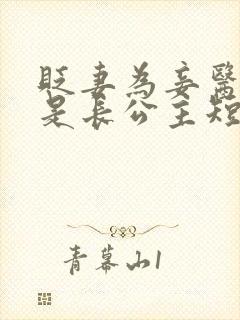 貶妻為妾醫
是長公主短
青幕山1